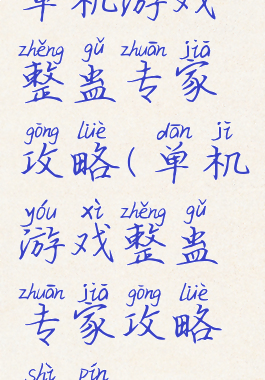 单机游戏
zhěng gǔ zhuān jiā
整蛊专家
gōng lüè dān jī
攻略(单机
yóu xì zhěng gǔ
游戏整蛊
zhuān jiā gōng lüè
专家攻略
shì pín